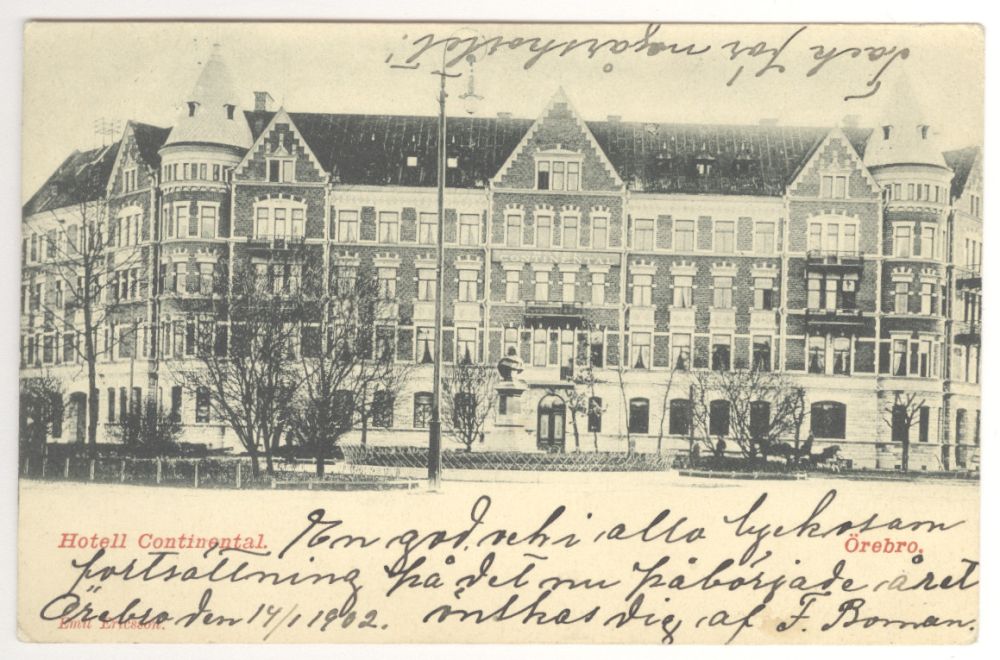 Tack för nyårskortet!
CONTINENTAL
Hotell Continental.
Örebro.
En god, och i alla lyckosam
fortsättning på det nu påbörjade året
Örebro den 14/1 1902. önskas dig, af F. Boman.
Emil Ericsson.